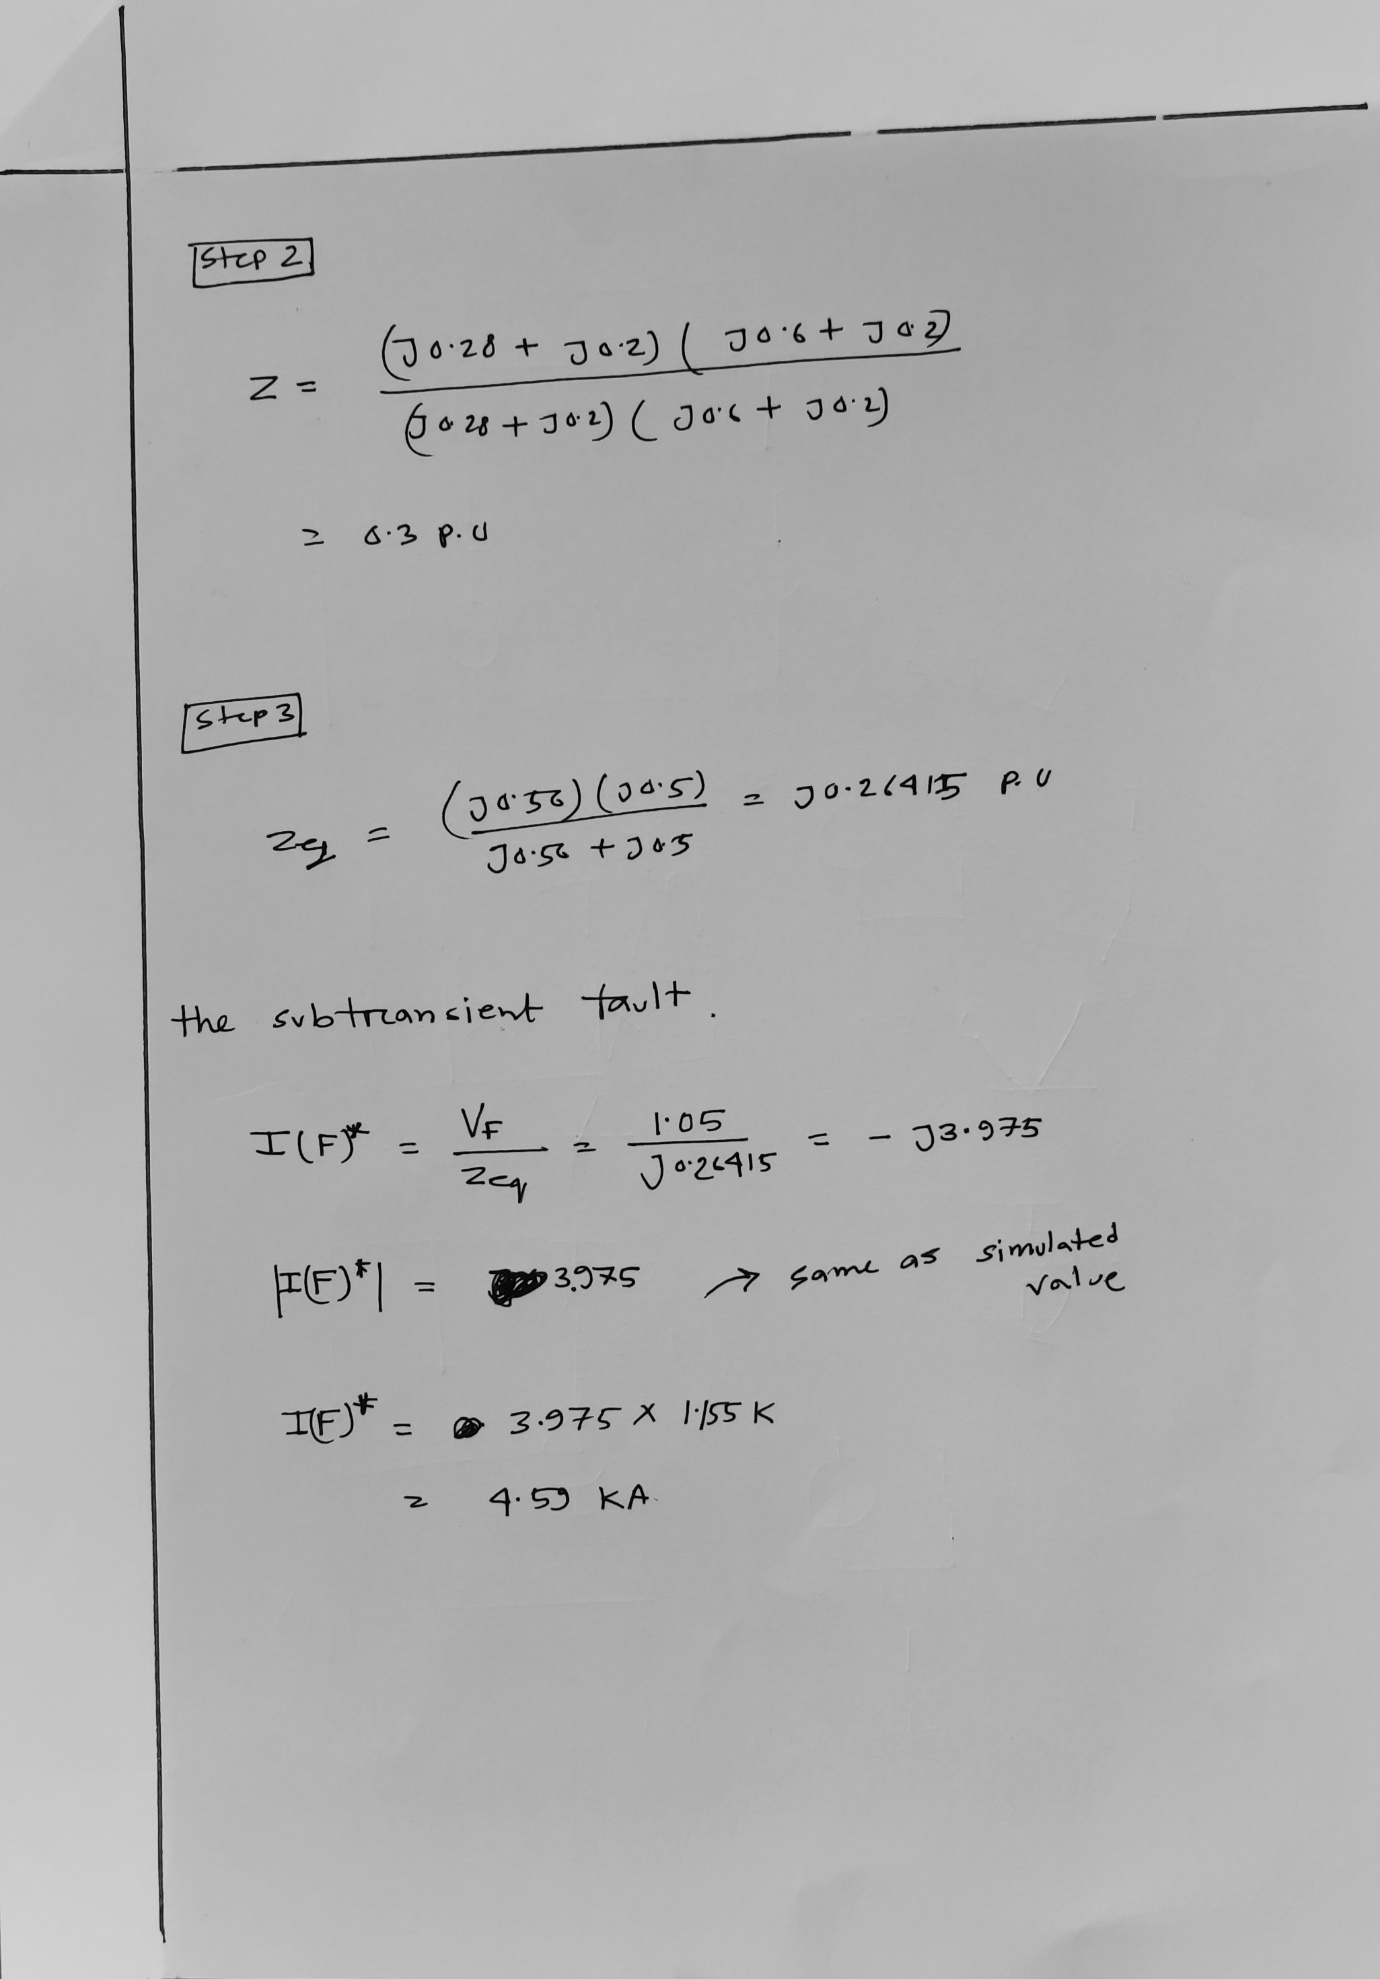 Step 2
Z = (J0.28 + J0.2) ( J0.6 + J0.2) / (J0.28 + J0.2) ( J0.6 + J0.2)
= 0.3 P.U
Step 3
Zeq = (J0.56) (J0.5) / J0.56 + J0.5 = J0.26415 P.U
the subtransient fault.
I(F)* = VF / Zeq = 1.05 / J0.26415 = - J3.975
|I(F)*| = 3.975 → same as simulated value
I(F)* = 3.975 X 1.155 K
= 4.59 KA.